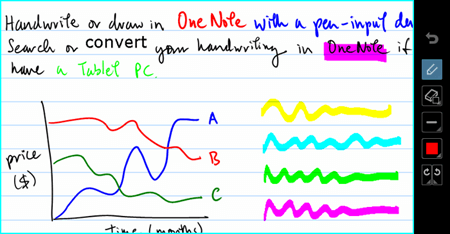 Handwrite or draw in OneNote with a pen-input de
Search or convert your handwriting in OneNote if
have a Tablet PC.
A
price
($)
B
C
time (months)